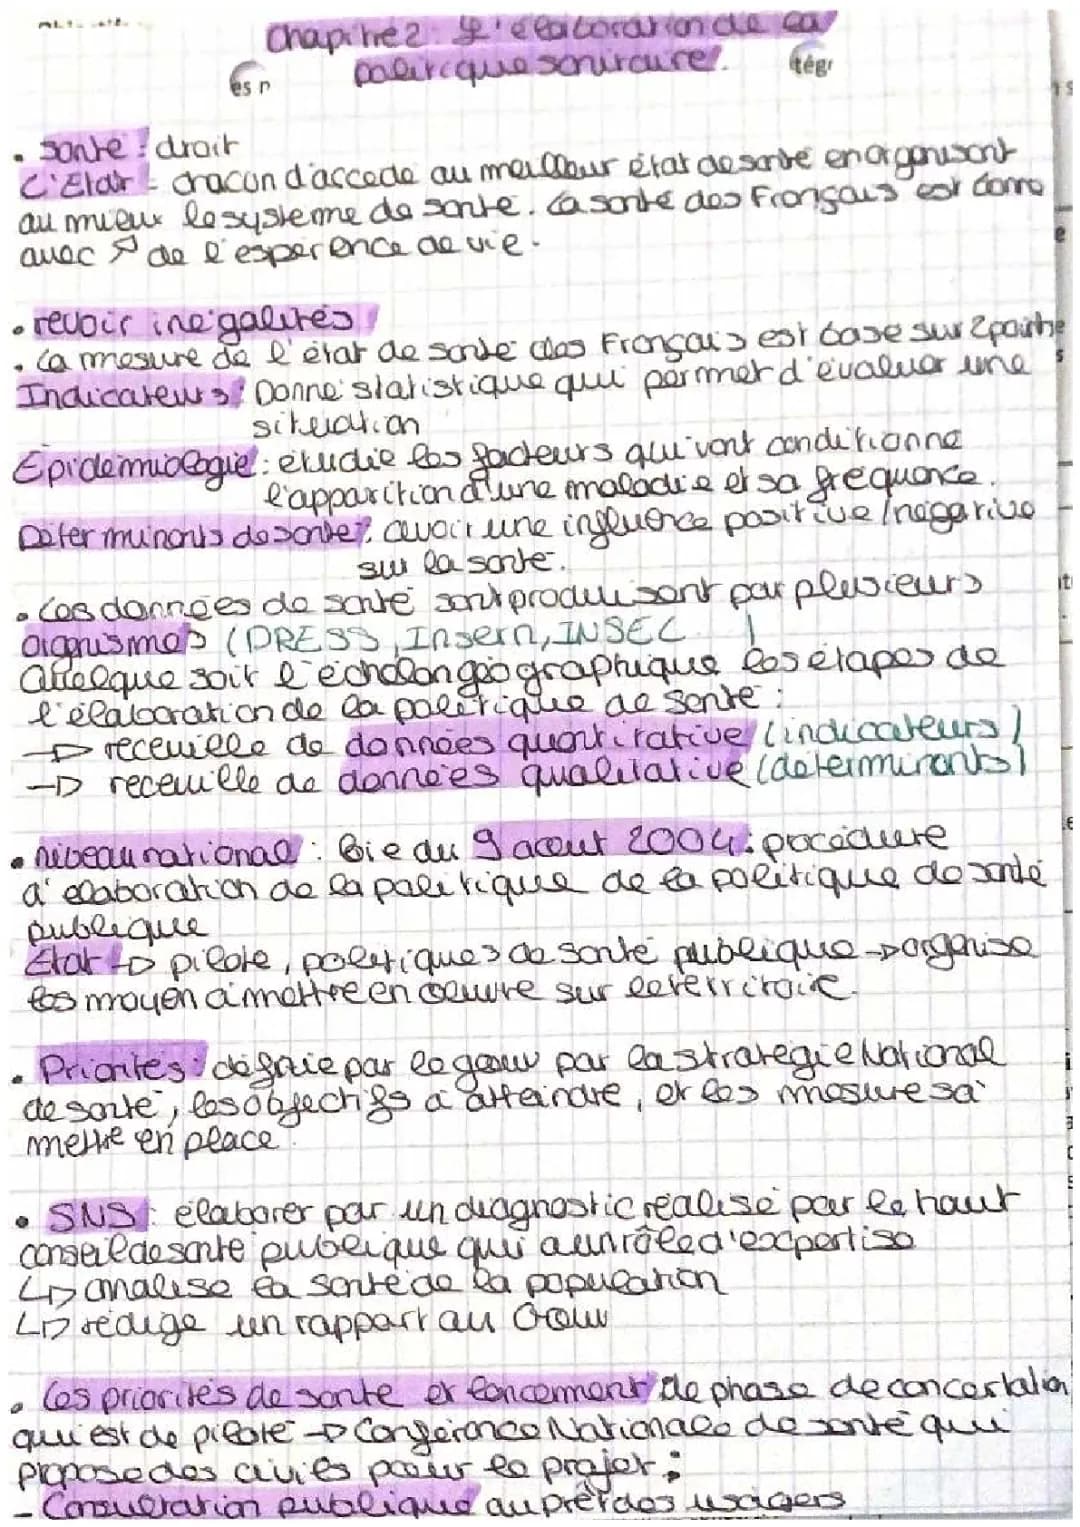 Chapitre 2 : L'élaboration de la
politique sanitaire.
tégr
es n
• santé : droit
L'Etat = chacun d'accede au meilleur état de santé en organisant
au mieux le systeme de santé. La santé des Français est bonne
avec ↗ de l'espérence de vie.
• revoir inégalités
• La mesure de l'état de santé des Français est basé sur 2 pointe
Indicateurs : Donné statistique qui permet d'évaluer une
situation
Epidémiologie : étudie les facteurs qui vont conditionné
l'apparition d'une maladie et sa fréquence.
Déterminants de santé : avoir une influence positive/négative
sur la santé.
• Les données de santé sont produisant par plusieurs
organismes (DRESS, Inserm, INSEC )
Quelque soit l'échelon géographique les étapes de
l'élaboration de la politique de santé :
→ receuille de données quantitative (indicateurs)
→ receuille de données qualitative (déterminants)
• niveau national : loie du 9 aout 2004 : procedure
d'elaboration de la politique de la politique de santé
publique
Etat → pilote, politiques de santé publique → organise
les moyen à mettre en oeuvre sur le territoire.
• Priorités : définie par le gouv par la stratégie National
de santé, les objectifs à atteindre, et les mesures à
mettre en place.
• SNS : élaborer par un diagnostic réalisé par le haut
conseil de santé publique qui a un rôle d'expertise
↳ analise la santé de la population
↳ rédige un rapport au Gouv
• Les priorités de santé et lancement de phase de concertation
qui est de piloté → Conférence Nationale de santé qui
propose des aviés pour le projet :
- Consultation publique auprêt des usagers